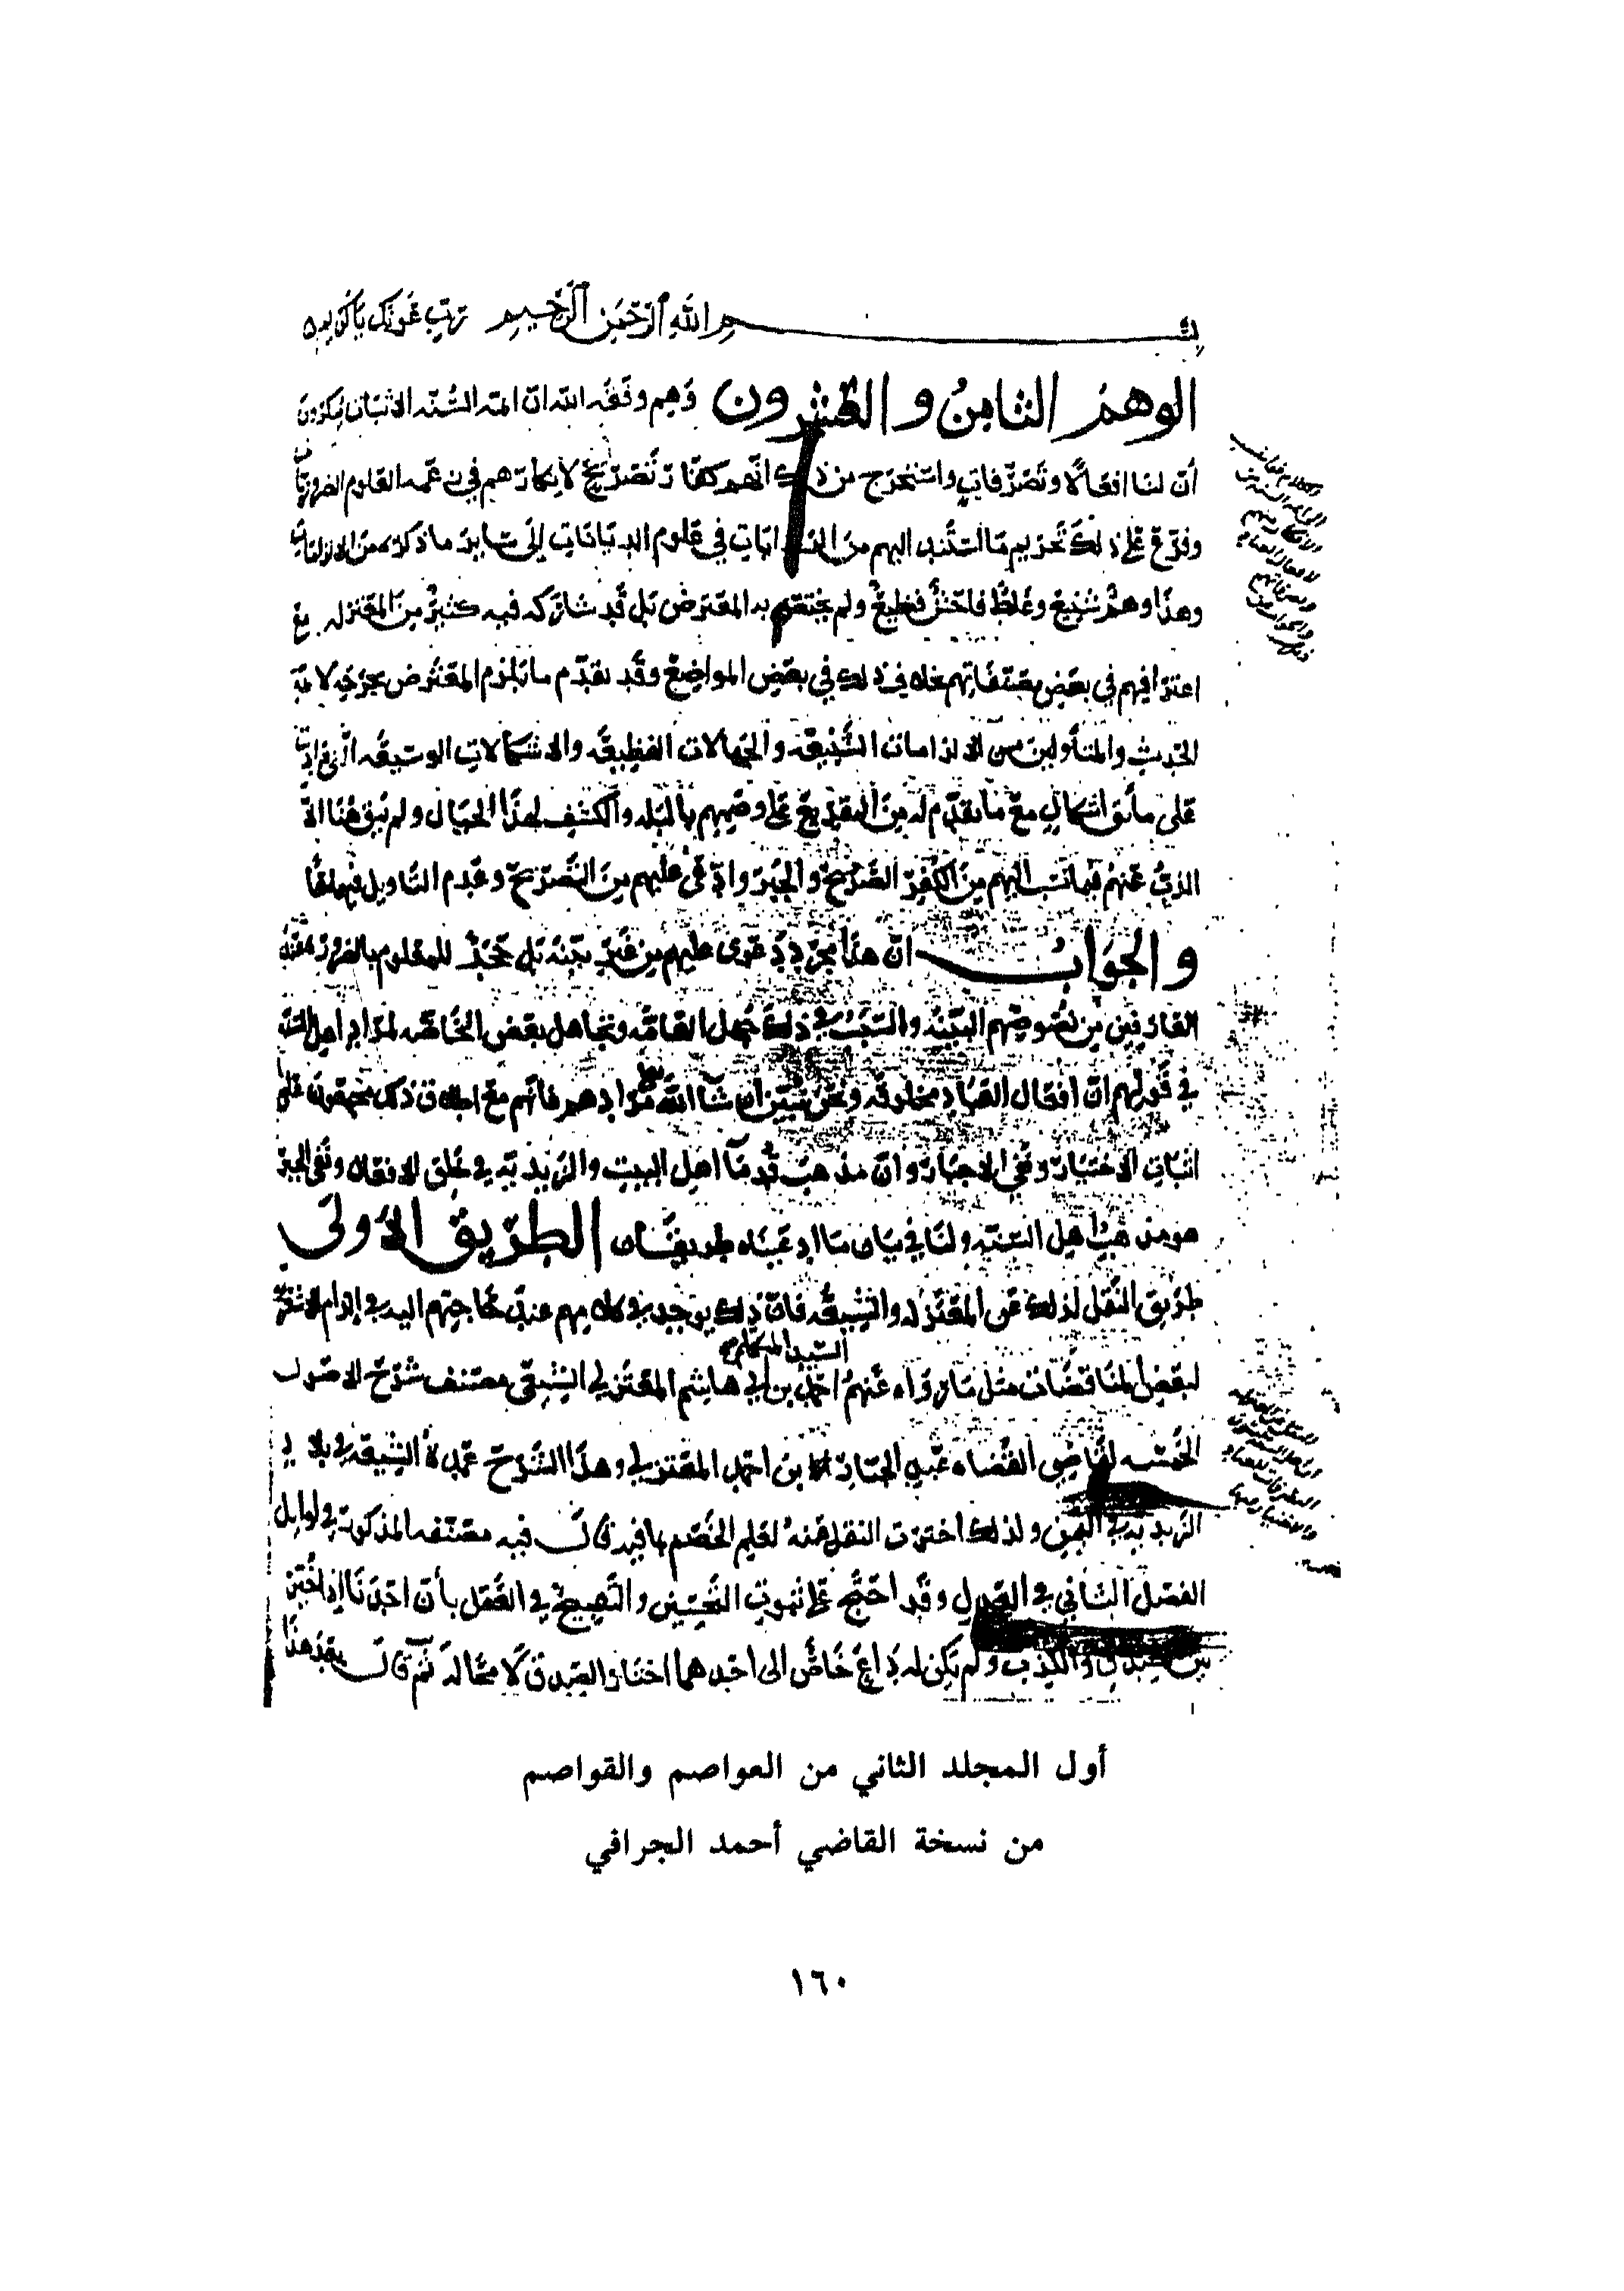 بسم الله الرحمن الرحيم رب عونك يا كريم
الوهم الثامن والعشرون وهم وفقه الله ان ائمه السنه الاثبات ينكرون
أن لنا افعالا وتصرفات واستخرج من ذلك انهم كفار تصريح لانكارهم في زعمه العلوم الضروريات
وفرع على ذلك تحريم ما استند اليهم من الروايات في علوم الديانات إلى ساير ما ذكره من الالزامات
وهذا وهم شنيع وغلط فاحش فظيع ولم يختص به المعترض بل قد شاركه فيه كثير من المعتزله مع
اعترافهم في بعض مصنفاتهم بخلاف ذلك في بعض المواضع وقد تقدم ما يلزم المعترض بجرحه لائمة
الحديث والمتأولين من الالزامات الشنيعه والجهالات الفظيعه والاشكالات الوسيعه التي زادت
على مأتي اشكال مع ما تقدم له من التقريع على وصيهم بالبله والكشف لهذا الخيال ولم يبق هنا الا
الذب عنهم فيما نسب اليهم من الكفر الصريح والجبر وادعى عليهم من التصريح وعدم التاويل فيهما معا
والجواب ان هذا مجرد دعوى عليهم من غير بينه بل جحد للمعلوم بالضرورة عند
العارفين من نصوصهم البينه والسبب في ذلك جهل العامه وتجاهل بعض الخاصه لمراد اهل السنه
في قولهم ان افعال العباد مخلوقه ونحن نبين ان شا الله تعالى مرادهم فانهم مع اطلاق ذلك مجمعون على
اثبات الاختيار ونفي الاجبار وان مذهب قدما اهل البيت والزيديه في خلق الافعال ونفي الجبر
هو مذهب اهل السنه ولنا في بيان ما ادعيناه طريقان الطريق الأولى
طريق النقل لذلك عن المعتزله والشيعه فان ذلك يوجد في كلامهم عند حاجتهم اليه في إلزام الاشعريه
لبعض المناقضات مثل ما رواه عنهم السيد المتكلم احمد بن ابي هاشم المعتزلي الشيعي مصنف شرح الاصول
الخمسه لقاضي القضاه عبد الجبار بن احمد المعتزلي وهذا الشرح عمدة الشيعه في بلاد
الزيديه في اليمن ولذلك اخترت النقل عنه لعلم الخصم بما فيه قال فيه مصنفه المذكور في اوايل
الفصل الثاني في العدل وقد احتج على ثبوت التحسين والتقبيح في العقل بأن احدنا إذا خير
بين الصدق والكذب ولم يكن له داع خاص الى احدهما اختار الصدق لا محالة ثم قال بعد هذا
أول المجلد الثاني من العواصم والقواصم
من نسخة القاضي أحمد الجرافي
١٦٠